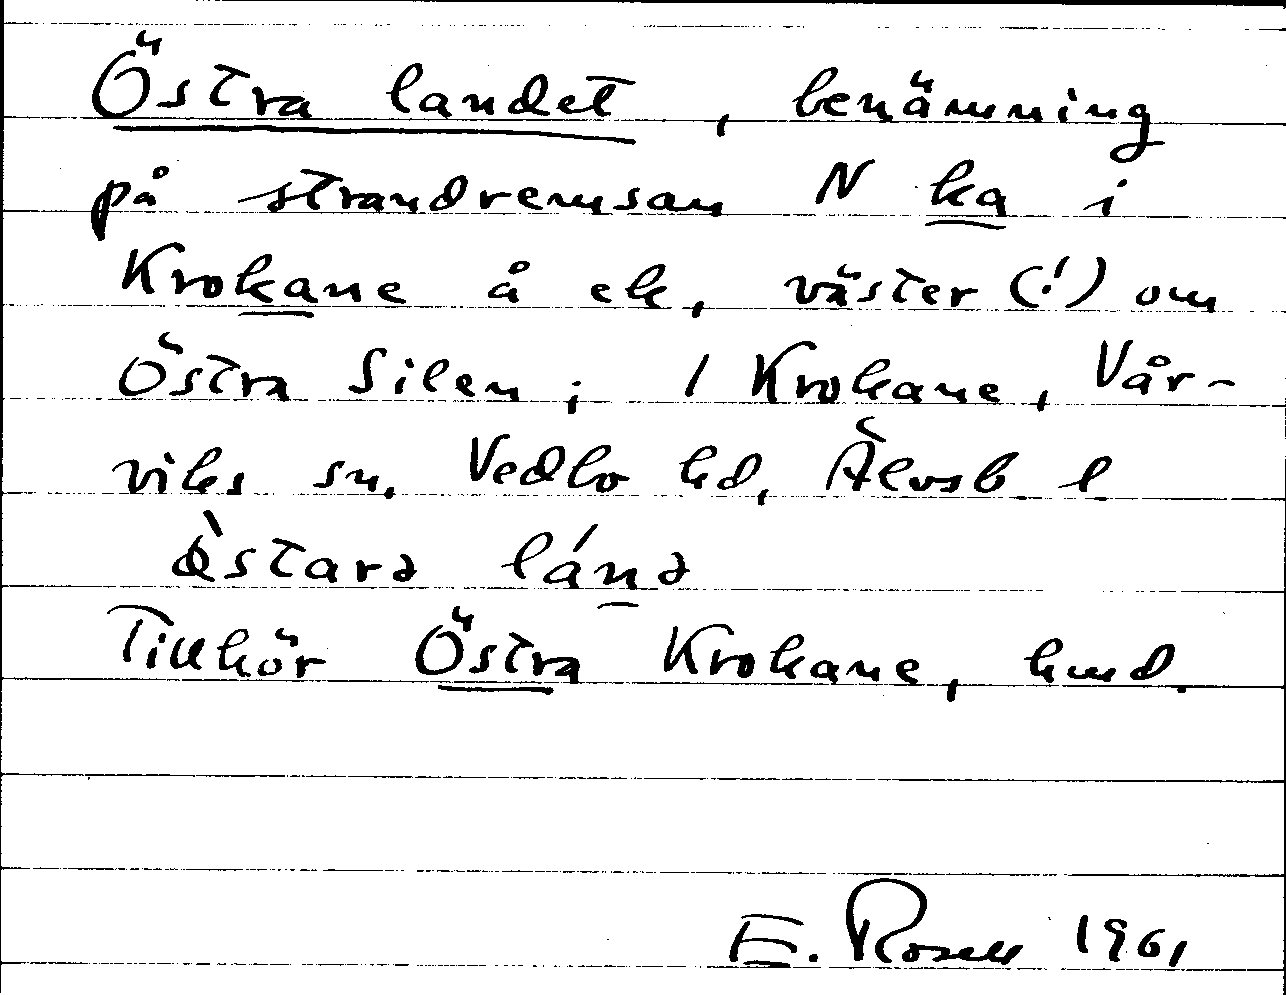 Östra landet, benämning
på strandremsan N ka i
Krokane å ek, väster (!) om
Östra Silen; 1 Krokane, Vår-
viks sn, Vedbo hd, Älvsb l
lánə
Tillhör Östra Krokane, hmd.
E. Rosell 1961